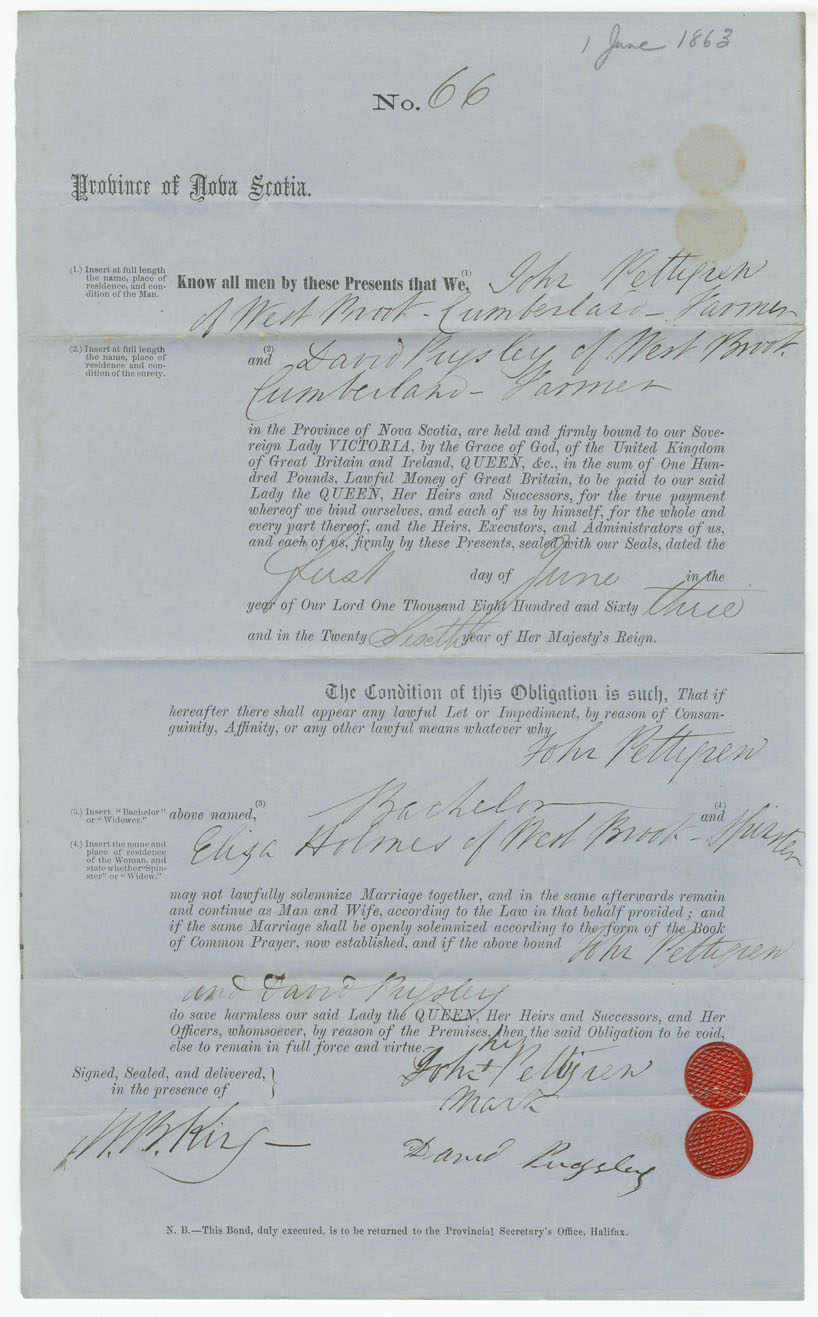 1 June 1863
No. 66
Province of Nova Scotia.
(1.) Insert at full length
the name, place of
residence, and con-
dition of the Man.
Know all men by these Presents that We, (1) John Pettigren
of West Brook - Cumberland - Farmer
(2.) Insert at full length
the name, place of
residence and con-
dition of the surety.
and (2) David Pugsley of West Brook
Cumberland - Farmer
in the Province of Nova Scotia, are held and firmly bound to our Sove-
reign Lady VICTORIA, by the Grace of God, of the United Kingdom
of Great Britain and Ireland, QUEEN, &c., in the sum of One Hun-
dred Pounds, Lawful Money of Great Britain, to be paid to our said
Lady the QUEEN, Her Heirs and Successors, for the true payment
whereof we bind ourselves, and each of us by himself, for the whole and
every part thereof, and the Heirs, Executors, and Administrators of us,
and each of us, firmly by these Presents, sealed with our Seals, dated the
first day of June in the
year of Our Lord One Thousand Eight Hundred and Sixty three
and in the Twenty Sixth year of Her Majesty's Reign.
The Condition of this Obligation is such, That if
hereafter there shall appear any lawful Let or Impediment, by reason of Consan-
guinity, Affinity, or any other lawful means whatever why
John Pettigren
(3.) Insert "Bachelor"
or "Widower."
above named, (3) Bachelor and (4)
(4.) Insert the name and
place of residence
of the Woman, and
state whether "Spin-
ster" or "Widow."
Eliza Holmes of West Brook - Spinster
may not lawfully solemnize Marriage together, and in the same afterwards remain
and continue as Man and Wife, according to the Law in that behalf provided; and
if the same Marriage shall be openly solemnized according to the form of the Book
of Common Prayer, now established, and if the above bound John Pettigren
and David Pugsley
do save harmless our said Lady the QUEEN, Her Heirs and Successors, and Her
Officers, whomsoever, by reason of the Premises, then the said Obligation to be void,
else to remain in full force and virtue.
his
Signed, Sealed, and delivered,
in the presence of
John + Pettigren
Mark
W. B. King
David Pugsley
N. B.—This Bond, duly executed, is to be returned to the Provincial Secretary's Office, Halifax.